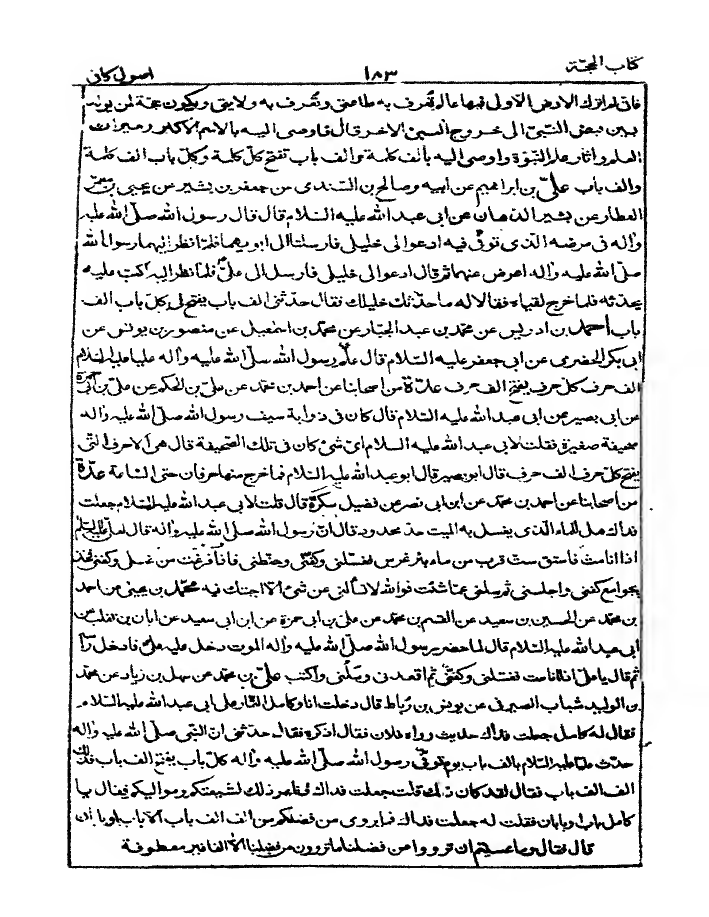 كتاب الحجّة ١٨٣ اصول كافى
فانى لم اترك الارض الاولى فيها عالم تعرف به طاعتى وتعرف به ولايتى ويكون حجة لمن يولد
بين قبض النبىّ الى خروج النبىّ الاخر قال فاوصى اليه بالاسم الاكبر وميراث
العلم واثار علم النبوّة واوصى اليه بالف كلمة والف باب تفتح كلّ كلمة وكلّ باب الف كلمة
والف باب علىّ بن ابراهيم عن ابيه وصالح بن السّندى عن جعفر بن بشير عن يحيى بن معمّر
العطار عن بشير الدّهان عن ابى عبد الله عليه السّلام قال قال رسول الله صلّى الله عليه
واله فى مرضه الّذى توفّى فيه ادعوا لى خليلى فارسلتا الى ابويهما فلمّا نظر اليهما رسول الله
صلّى الله عليه واله اعرض عنهما ثم قال ادعوا لى خليلى فارسل الى علىّ فلمّا نظر اليه اكبّ عليه
يحدّثه فلما خرج لقياه فقالا له ما حدّثك خليلك فقال حدّثنى الف باب يفتح لى كلّ باب الف
باب أحمد بن ادريس عن محمّد بن عبد الجبّار عن محمّد بن اسمعيل عن منصور بن يونس عن
ابى بكر الحضرمى عن ابى جعفر عليه السّلام قال علّم رسول الله صلّى الله عليه واله عليا عليه السّلام
الف حرف كلّ حرف يفتح الف حرف عدّة من اصحابنا عن احمد بن محمّد عن علىّ بن الحكم عن علىّ بن ابى حمزة
عن ابى بصير عن ابى عبد الله عليه السّلام قال كان فى ذوابة سيف رسول الله صلّى الله عليه واله
صحيفة صغيرة فقلت لابى عبد الله عليه السّلام اىّ شئ كان فى تلك الصّحيفة قال هى الاحرف الّتى
يفتح كلّ حرف الف حرف قال ابو بصير قال ابو عبد الله عليه السّلام فما خرج منها حرفان حتى السّاعة عدّة
من اصحابنا عن احمد بن محمّد عن ابن ابى نصر عن فضيل سكرة قال قلت لابى عبد الله عليه السّلام جعلت
فداك هل للماء الّذى يغسل به الميت حدّ محدود قال انّ رسول الله صلّى الله عليه واله قال لعلى عليه السّلم
اذا انا متّ فاستق ستّ قرب من ماء بئر غرس فغسّلنى وكفّنّى وحنّطنى فاذا فرغت من غسلى وكفنى فخذ
بجوامع كفنى واجلسنى ثم سلنى عمّا شئت فوالله لا تسألنى عن شئ الّا اجبتك فيه محمّد بن يحيى عن احمد
بن محمّد عن الحسين بن سعيد عن القسم بن محمّد عن علىّ بن ابى حمزة عن ابن ابى سعيد عن ابان بن تغلب عن
ابى عبد الله عليه السّلام قال لما حضر رسول الله صلّى الله عليه واله الموت دخل عليه علىّ فادخل رأسه
ثم قال يا علىّ اذا انا مت فغسّلنى وكفّنّى ثم اقعدنى وسلنى واكتب علىّ بن محمّد عن سهل بن زياد عن محمّد
بن الوليد شباب الصيرفى عن يونس بن رباط قال دخلت انا وكامل التمّار على ابى عبد الله عليه السّلام
فقال له كامل جعلت فداك حديث رواه فلان فقال اذكره فقال حدّثنى انّ النبّى صلّى الله عليه واله
حدّث عليّا عليه السّلام بالف باب يوم توفّى رسول الله صلّى الله عليه واله كلّ باب يفتح الف باب فذلك
الف الف باب فقال لقد كان ذلك قلت جعلت فداك فظهر ذلك لشيعتكم ومواليكم فقال يا
كامل باب او بابان فقلت له جعلت فداك فما يروى من فضلكم من الف الف باب الّا باب او بابان
قال فقال وما عسيتم ان ترووا من فضلنا ما تروون من فضلنا الّا الفا غير معطوفة